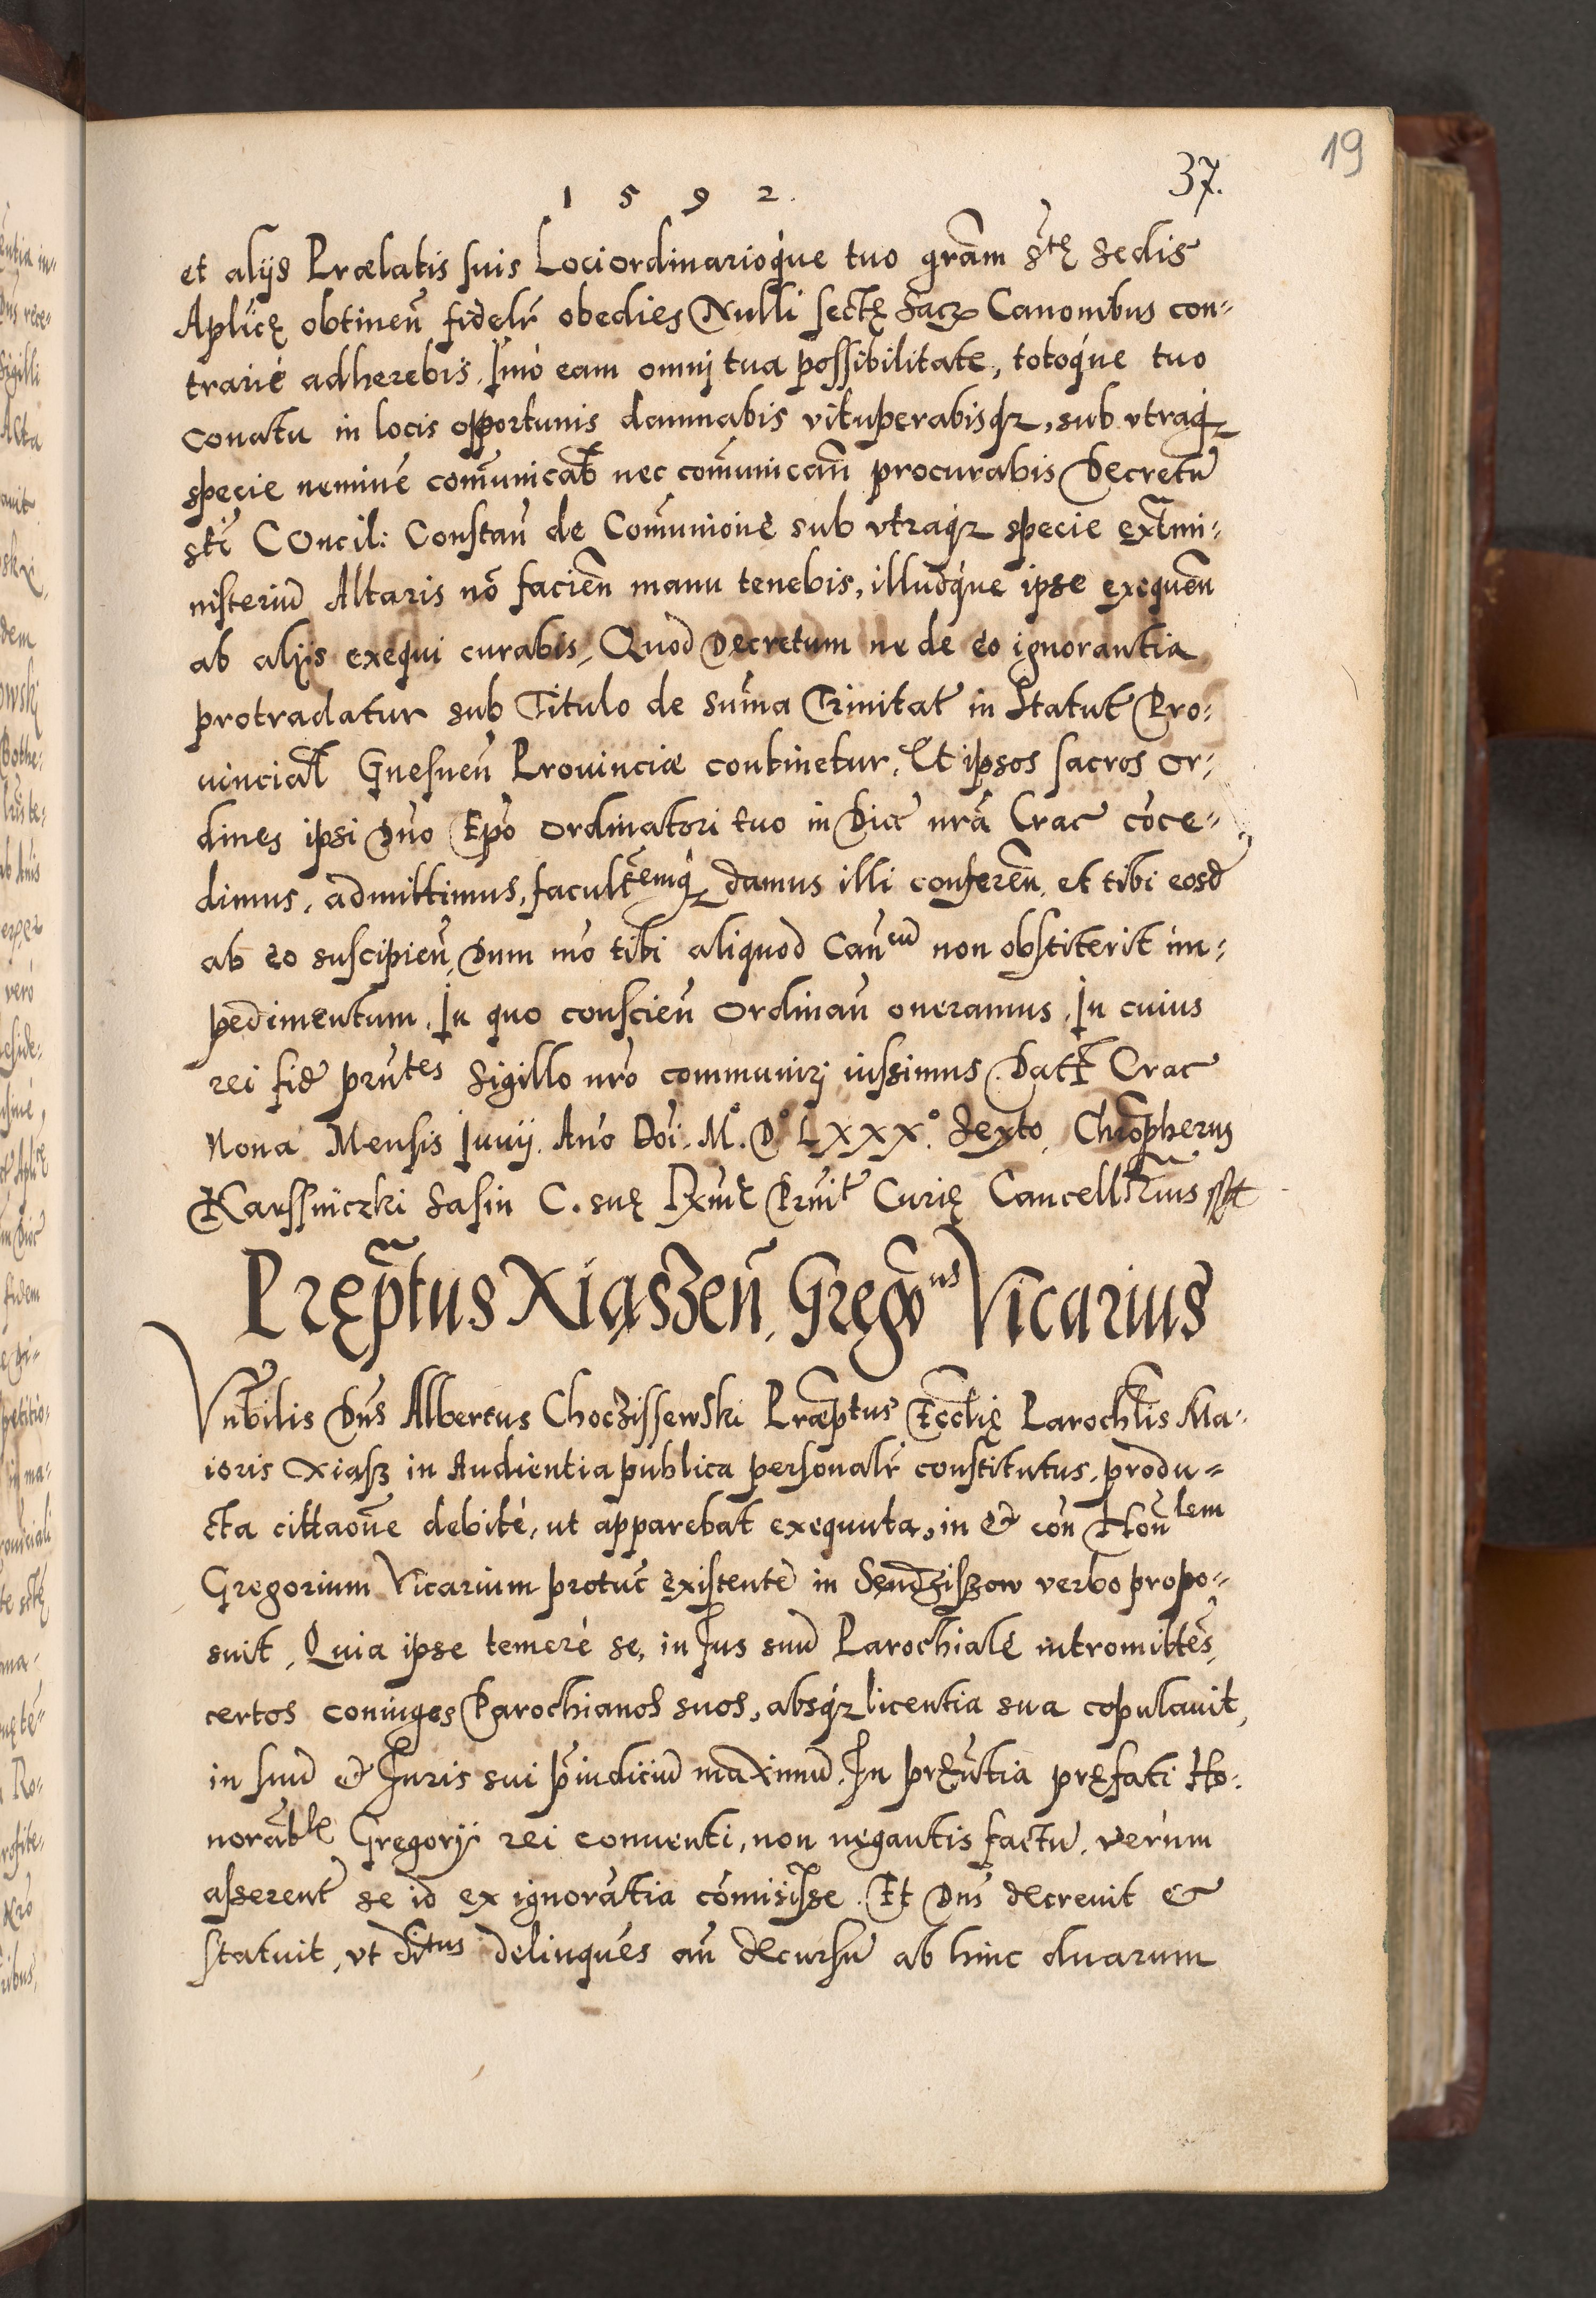 19
37.
1 5 9 2.
et alijs Prælatis suis Lociordinarioq́ue tuo grãm S̃tę Sedis
Aplicę obtineñ fidelr̃ obedies Nulli sectę Sacꝝ Canonibus con-
trarié adherebis. Imò eam omnj tua possibilitate, totoq́ue tuo
conatu in locis opportunis damnabis vituperabisqꝫ, sub vtraqꝫ
specie neminẽ com̃unicab̃ nec com̃unicañ procurabis Decretũ
S̃ti COncil: Constañ de Com̃unione sub vtraqꝫ specie extr̃mi-
nisteriũ Altaris nõ facieñ manu tenebis, illudq́ue ipse exequeñ
ab alijs exequi curabis, Quod Decretum ne de eo ignorantia
protradatur sub Titulo de Sum̃a Trinitat̃ in Statut̃ Pro-
uincial̃ Gnesneñ Prouinciæ continetur. Et ipsos sacros or-
dines ipsi Dño Ep̃o Ordinatori tuo in Dic̃ nrã Crac̃ cõce-
dimus, admittimus, facult̃emqꝫ damus illi confereñ, et tibi eosd̃
ab eo suscipieñ, Dum mõ tibi aliquod Cañcũ non obstiterit im-
pedimentum. In quo conscieñ Ordinañ oneramus. In cuius
rei fid̃ prñtes Sigillo nr̃o communirj iussimus. Datt̃ Crac̃
Nona Mensis Junij. Ãno Dõi. M°. D° LXXX°. Sexto. Chr̃opherus
Karssniczki Sasin C. suę Rxm̃ę Pr̃nit̃ Curię Cancell̃rius sst
Pręp̃tus Xiąszeñ, Greg̃orius Vicarius
Vñbilis Dñs Albertus Choczissewski Præp̃tus Eccl̃ię Parochl̃is Ma-
ioris Xiąsz in Audientia publica personalr̃ constitutus, produ-
cta cittaoñe debité, ut apparebat exequuta, in & coñ Hoñlem
Gregorium Vicarium protũc existentẽ in Sendziszow verbo propo-
suit, Quia ipse temeré se, in Jus suũ Parochiale intromittẽs,
certos coniuges Parochianos suos, absqꝫ licentia sua copulauit,
in suũ & Juris sui p̃iudiciũ maximũ. In pręñtia pręfati Ho-
norab̃le Gregorij rei conuenti, non negantis factũ, verùm
asserent̃ se id ex ignorãtia cõmisisse. Et Dñs decreuit &
statuit, vt d̃itus delinquẽs añ decursũ ab hinc duarum